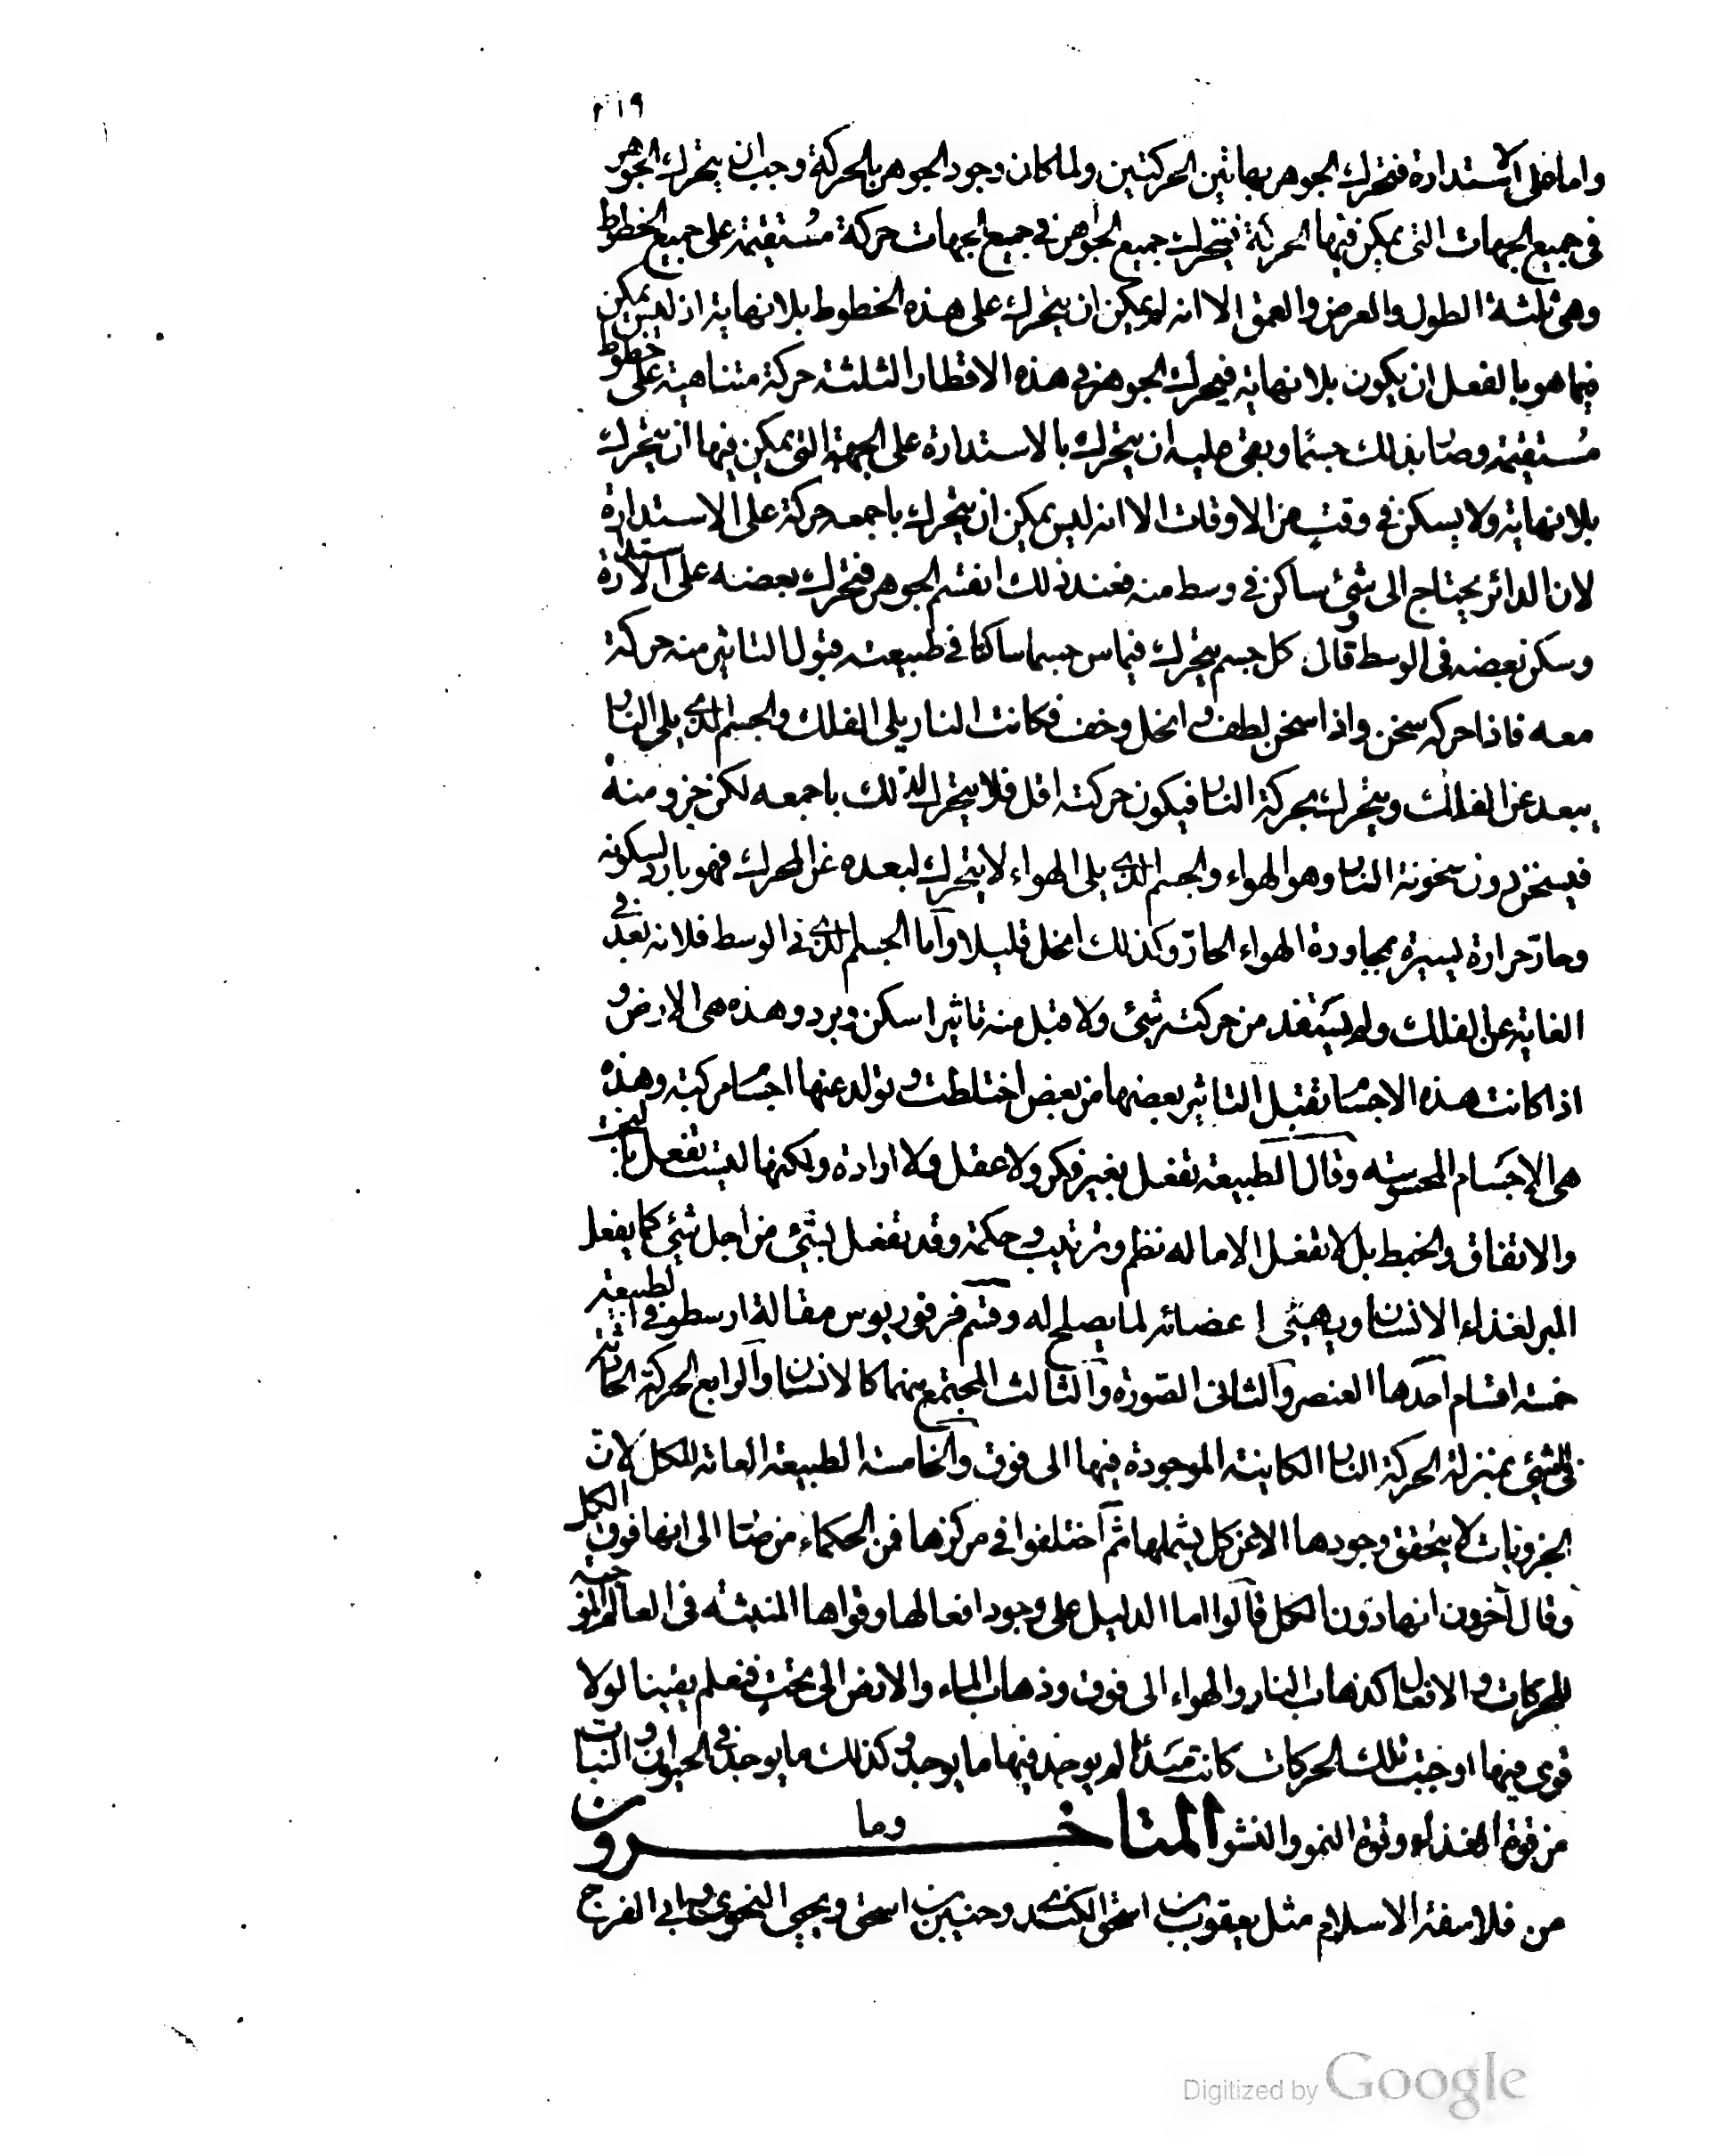 ٢١٩
واما على الاستدارة فتحرك الجوهر بهاتين الحركتين ولما كان وجود الجوهر بالحركة وجب ان يتحرك الجوهر
في جميع الجهات التي يمكن فيها الحركة فيتحرك جميع الجواهر في جميع الجهات حركة مستقيمة على جميع الخطوط
وهي ثلثة الطول والعرض والعمق الا انه لم يمكن ان يتحرك على هذه الخطوط بلا نهاية اذ ليس يمكن
فيما هو بالفعل ان يكون بلا نهاية فيحرك الجوهر في هذه الاقطار الثلثة حركة متناهية على خطوط
مستقيمة وصار بذلك جسما وبقى عليه ان يتحرك بالاستدارة على الجهة التي يمكن فيها ان يتحرك
بلا نهاية ولا يسكن في وقت من الاوقات الا انه ليس يمكن ان يتحرك باجمعه حركة على الاستدارة
لان الدائر يحتاج الى شئ ساكن في وسط منه فعند ذلك انقسم الجوهر فتحرك بعضه على الاستدارة
وسكن بعضه في الوسط وقال كل جسم يتحرك فيماس جسما ساكنا في طبيعته قبول التاثير منه حركة
معه فاذا حركه سخن واذا سخن لطف وانحل وخف فكانت النار يلي الفلك والجسم الذي يلي النار
يبعد عن الفلك ويتحرك بحركة النار فيكون حركته اقل فلا يتحرك لذلك باجمعه لكن جزو منه
فيسخن دون سخونة النار وهو الهواء والجسم الذي يلي الهواء لا يتحرك لبعده عن المحرك فهو بارد لسكونه
وحار حرارة يسيرة بمجاورة الهواء الحار وكذلك انحل قليلا واما الجسم الذي في الوسط فلانه بعد في
الغاية عن الفلك ولم يستفد من حركته شئ ولا قبل منه تاثيرا سكن وبرد وهذه هي الارض و
اذا كانت هذه الاجسام تقبل التاثير بعضها من بعض اختلطت وتولد عنها اجسام مركبة وهذه
هي الاجسام المحسوسه وقال الطبيعة تفعل بغير فكر ولا عقل ولا ارادة ولكنها ليست تفعل بالبخت
والاتفاق والخبط بل لا تفعل الا ما له نظم وترتيب وحكمة وقد تفعل لشئ من اجل شئ كما يفعل
البر لغذاء الانسان ويهيئ اعضائه لما يصلح له وقسم فرفوريوس مقالة ارسطو في الطبيعة
خمسة اقسام احدها العنصر والثاني الصورة والثالث المجتمع منهما كالانسان والرابع الحركة الحادثة
في الشئ بمنزلة الحركة النار الكاينة الموجودة فيها الى فوق والخامسة الطبيعة العامة للكل لان
الجزويات لا يتحقق وجودها الا عن كل يشملها ثم اختلفوا في مركزها فمن الحكماء من صار الى انها فوق الكل
وقال آخرون انها دون الكل قالوا اما الدليل على وجود افعالها وقواها المنبثه في العالم الموجبة
للحركات والافعال كذهاب النار والهواء الى فوق وذهاب الماء والارض الى تحت فنعلم يقينا لولا
قوى فيها اوجبت تلك الحركات كانت مبدأ لم يوجد فيها ما يوجد وكذلك ما يوجد في الحيوان والنبات
من قوة الغذاء وقوة النمو والنشو وما المتاخرون
من فلاسفة الاسلام مثل يعقوب بن اسحق الكندي وحنين بن اسحق ويحيى النحوي وابي الفرج
Digitized by Google